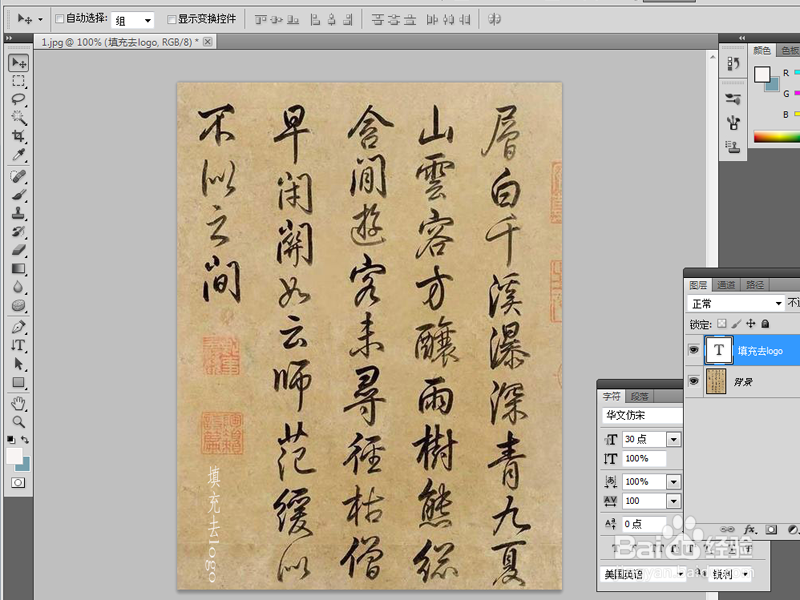 自动选择: 组 显示变换控件
1.jpg @ 100% (填充去logo, RGB/8) *
層白千溪瀑深青九夏
山雲容方釀雨樹態總
含閒遊客未尋徑枯僧
早閑關如云師范緩似
不似云間
填充去logo
颜色 色板
R
G
B
图层 通道 路径
正常 不
锁定:
T 填充去logo
背景
字符 段落
华文仿宋
30 点
100%
100%
100
0 点
美国英语 锐利
Baidu 经验